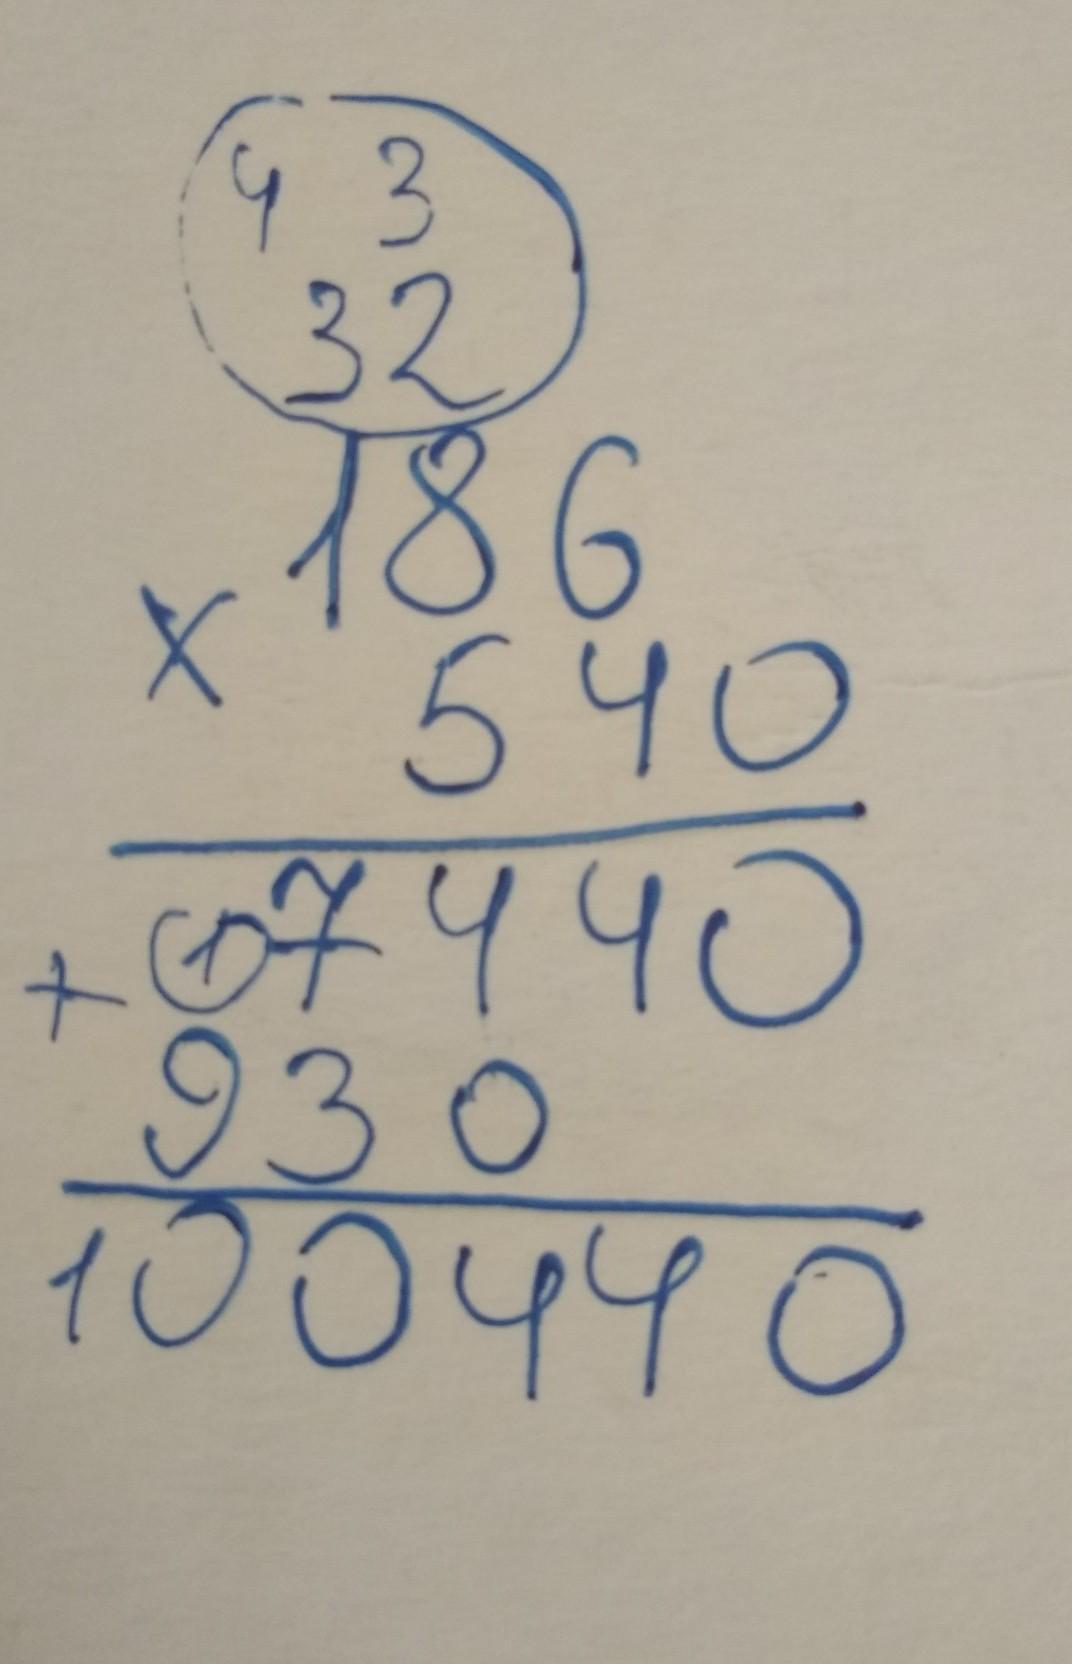 4 3
32
186
x 540
1 7440
+ 930
100440